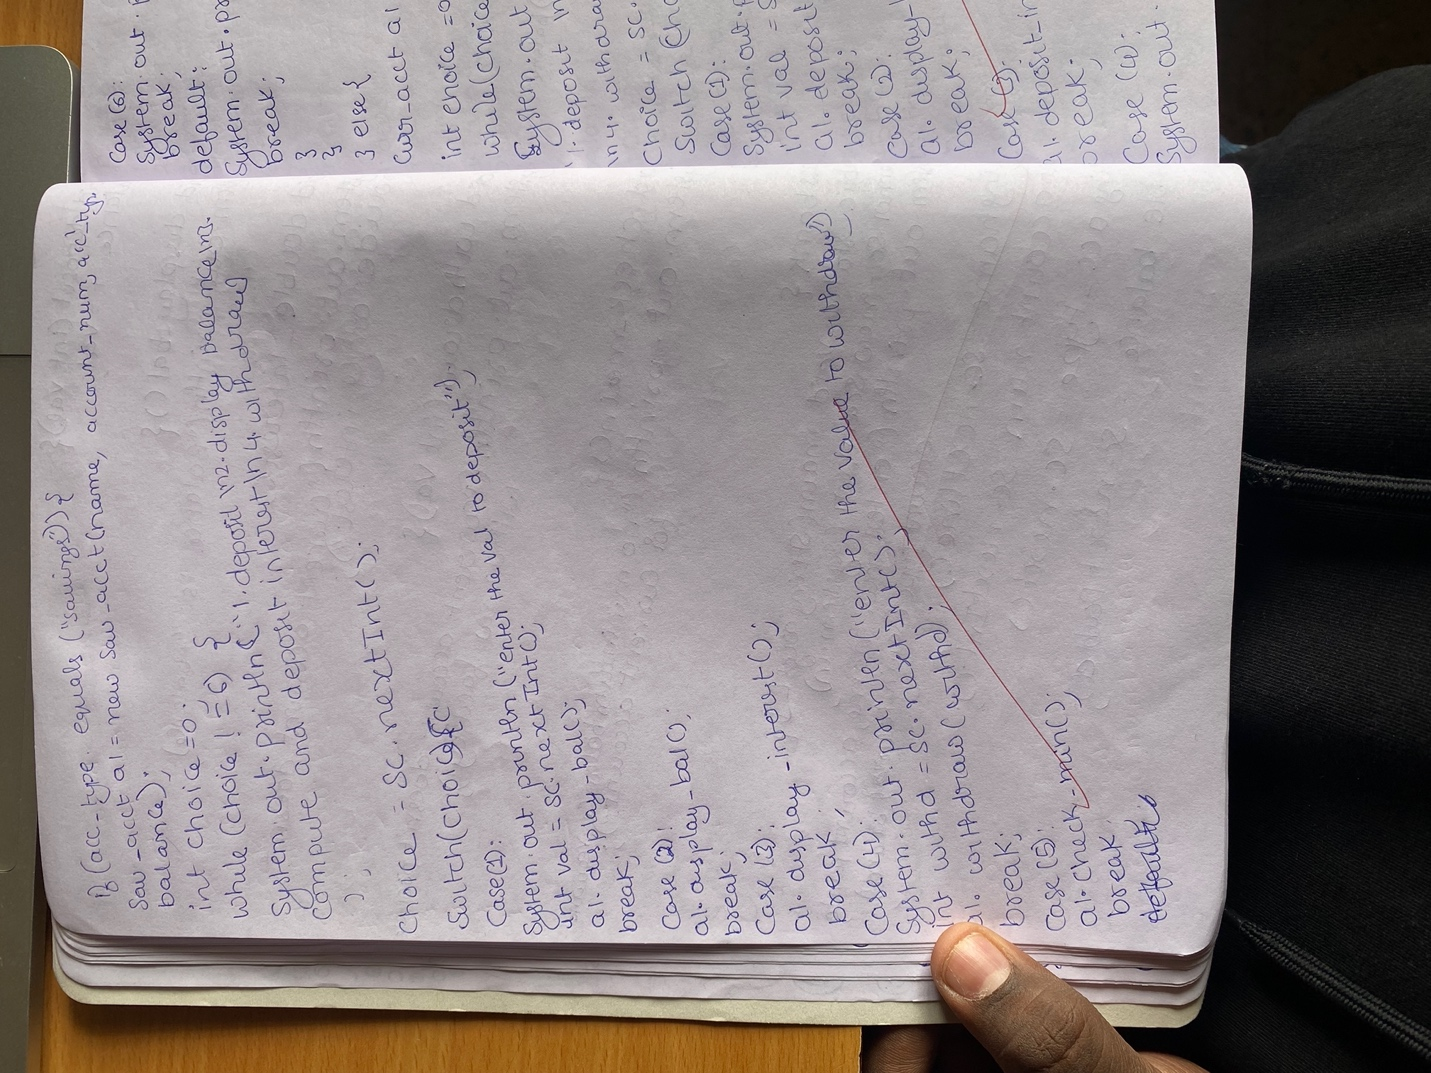 if (acc-type. equals ("savings")) {
Sav-acct a1 = new sav-acct(name, account-num, acc-typ,
balance);
int choice =0;
while (choice ! = 6) {
System.out.println ("1.deposit \n2.display balance \n3.
compute and deposit interest \n 4. withdraw
);
Choice = SC.nextInt();
Switch(choice){
Case(1):
System.out println ("enter the val to deposit");
int val = SC.nextInt();
a1. display-bal();
break;
Case (2):
a1. display-bal();
break;
Case (3):
a1. display-interest();
break;
Case (4):
System.out.println ("enter the value to withdraw")
int withd = SC.nextInt();
a1. withdraw (withd);
break;
Case (5):
a1.check-min();
break
default
Case (6):
System.out.p
break;
default:
System.out.pr
break;
}
}
} else{
Curr-acct a1
int choice =0
while(choice
System.out
1. deposit \n
\n 4. withdra
Choice = SC.
Switch (cho
Case (1):
System.out.
int val = S
a1. deposit
break;
Case (2):
a1. display-
break;
Case (3):
a1. deposit-in
break;
Case (4):
System.out.